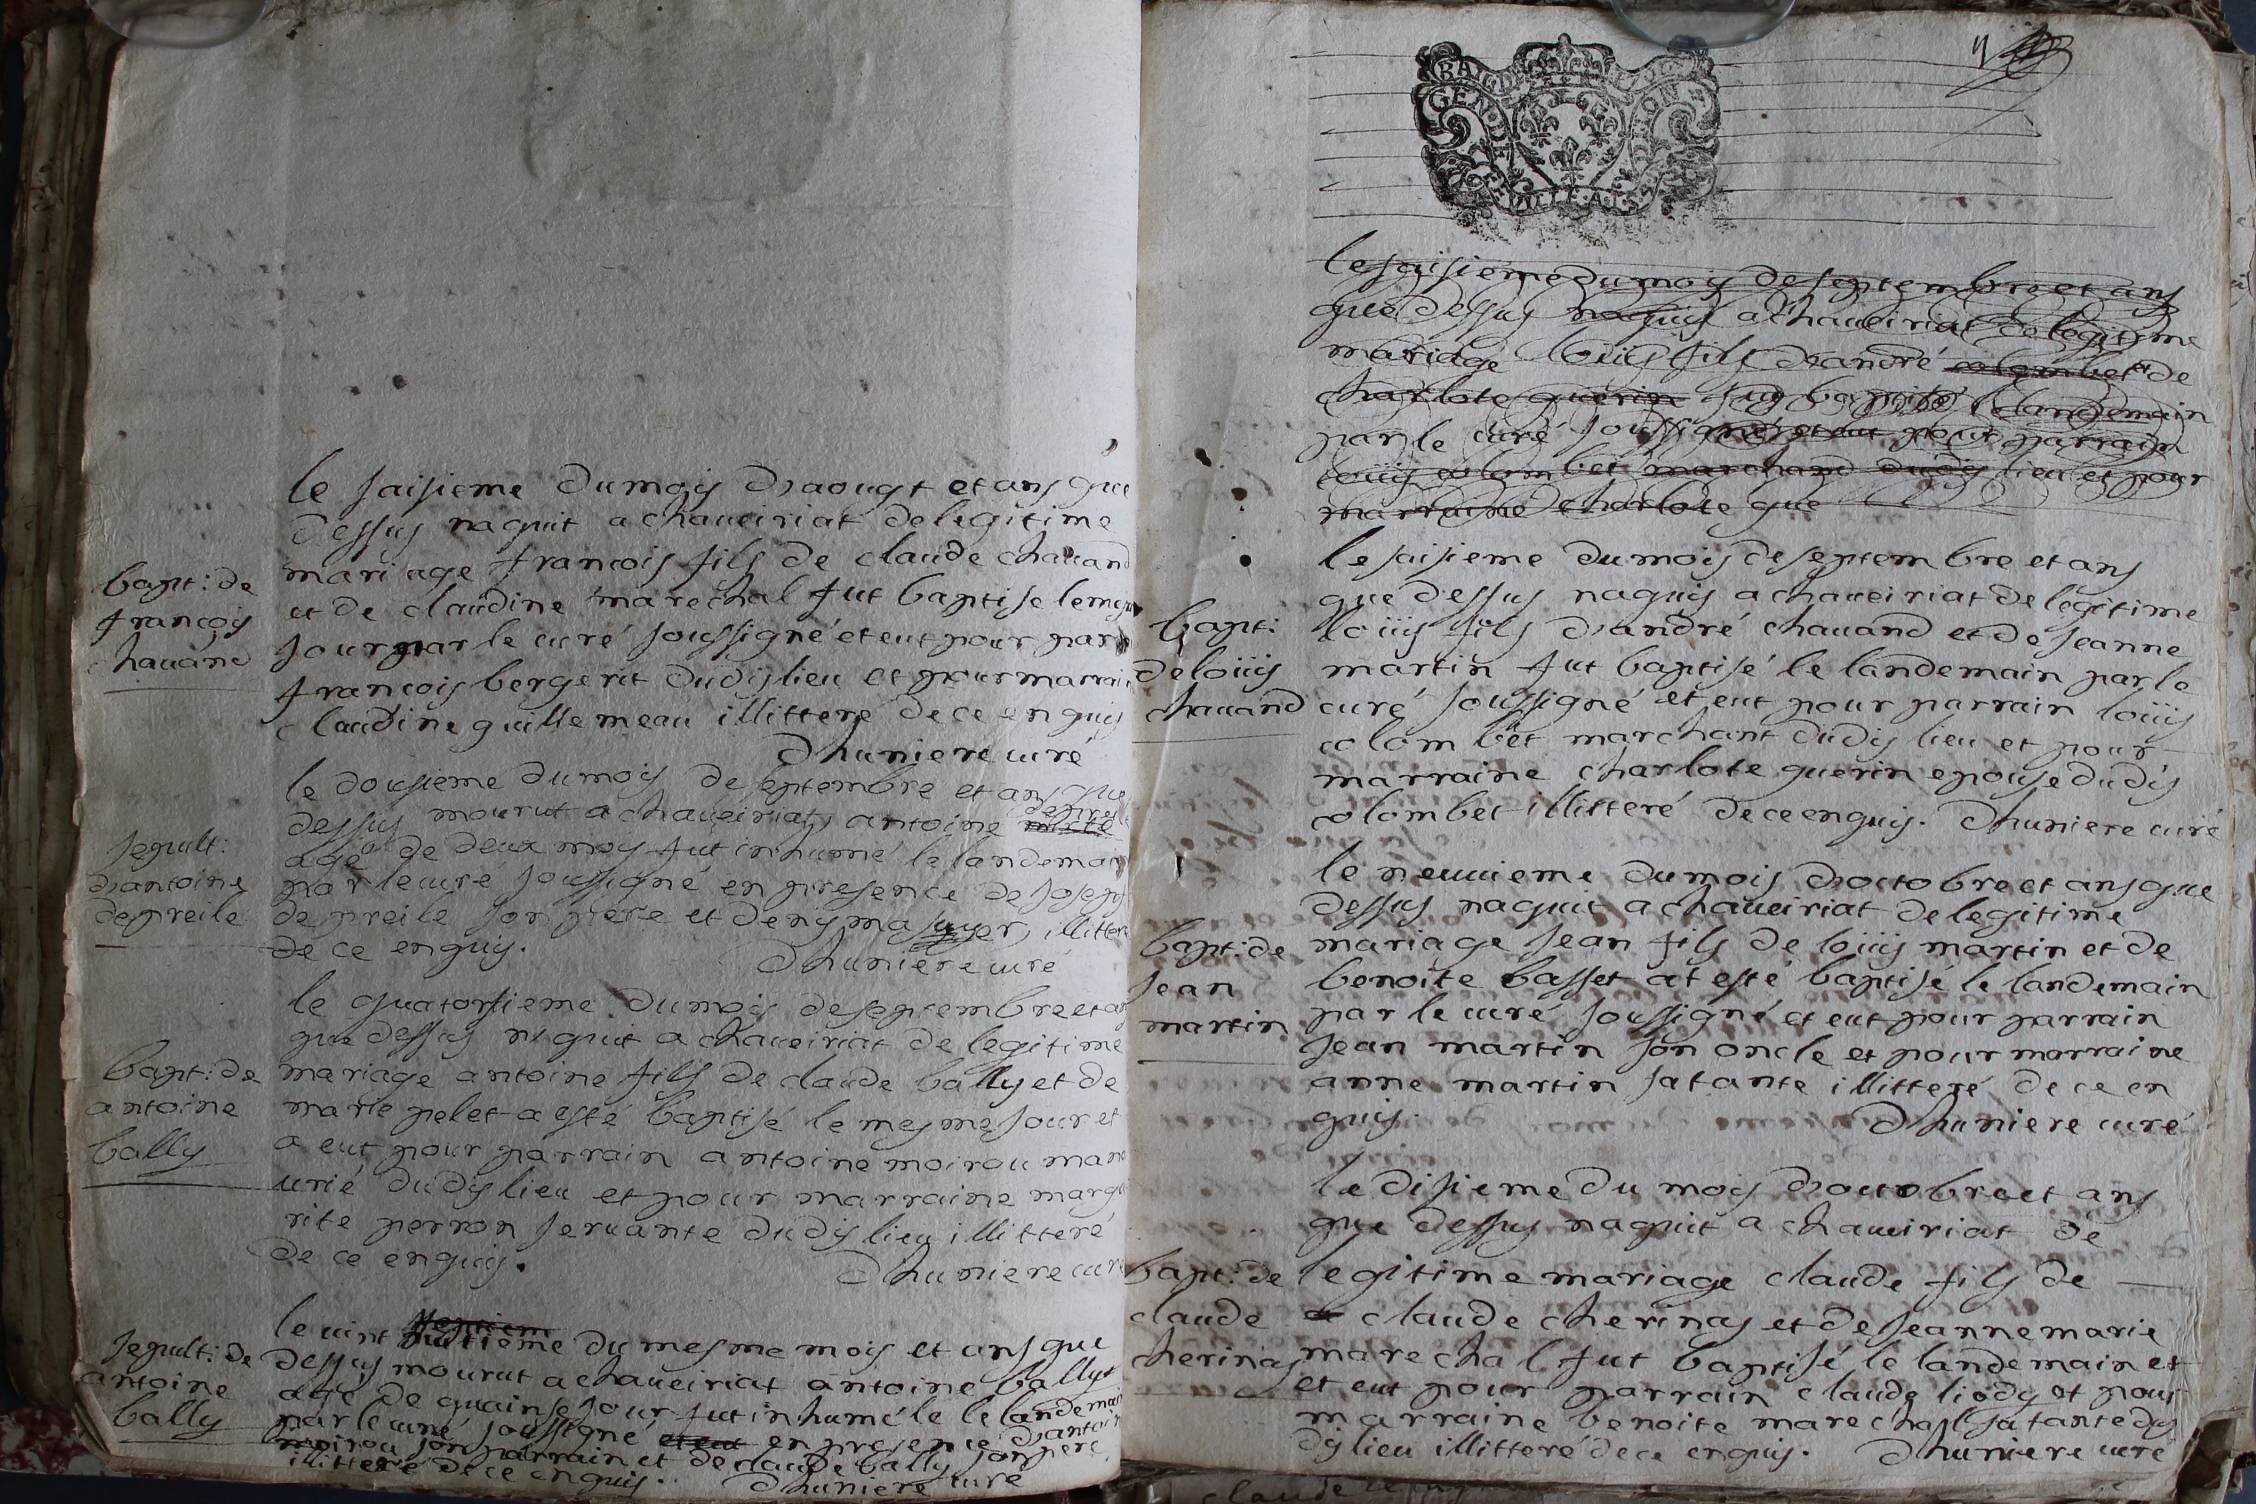 le saisieme du mois d'aougt et ans que
dessus naquit a chaveiriat de legitime
mariage francois fils de claude chavand
bapt: de
francois
chavand
et de claudine marechal fut baptise le mesme
jour par le curé soussigné et eut pour par
francois bergerit dudis lieu et pour marrain
claudine guillemeau illitteré de ce enquis
Dhuniere curé
le dousieme du mois de septembre et ans que
depreile
dessus mourut a chaveiriat antoine
sepult:
d'antoine
depreile
agé de deux mois fut inhumé le landemain
par le curé soussigné en presence de Joseph
de preile son pere et denis masuyer, illittere
de ce enquis.
Dhuniere curé
le quatorsieme du mois de septembre et ans
que dessus naquit a chaveiriat de legitime
bapt: de
antoine
bally
mariage antoine fils de claude bally et de
marie pelet a esté baptisé le mesme jour et
a eut pour parrain antoine moirou man
urié dudis lieu et pour marraine margu
rite perron servante dudis lieu illitteré
de ce enquis.
Dhuniere curé
le vint huitieme du mesme mois et ans que
sepult: de
antoine
bally
dessus mourut a chaveiriat antoine bally
agé de quainse jour fut inhumé le le landemain
par le curé soussigné et eut en presence d'antoin
moirou son parrain et de claude bally son pere
illitteré de ce enquis. Dhuniere curé
GEN
le saisieme du mois de septembre et ans
que dessus naquis a chaveiriat de legitime
mariage loüis fils d'andré colombet et de
charlote guerin fut baptisé le landemain
par le curé soussigné et eut pour parrain
loüis colombet marchand dudis lieu et pour
marraine charlote gue
le saisieme du mois de septembre et ans
que dessus naquis a chaveiriat de legitime
bapt:
de loüis
chavand
loüis fils d'andré chavand et de Jeanne
martin fut baptisé le landemain par le
curé soussigné et eut pour parrain loüis
colombet marchant dudis lieu et pour
marraine charlote guerin epouse dudis
colombet illitteré de ce enquis. Dhuniere curé
le neuvieme du mois d'octobre et ans que
dessus naquit a chaveiriat de legitime
bapt: de
Jean
martin
mariage Jean fils de loüis martin et de
benoite basset at esté baptisé le landemain
par le curé soussigné et eut pour parrain
Jean martin son oncle et pour marraine
anne martin sa tante illitteré de ce en
quis. Dhuniere curé
le disieme du mois d'octobre et ans
que dessus naquit a chaveiriat de
bapt: de
claude
cherinas
legitime mariage claude fils de
claude cherinas et de Jeanne marie
marechal fut baptisé le landemain et
et eut pour parrain claude liody et pour
marraine benoite marechal sa tante du
dis lieu illitteré de ce enquis. Dhuniere curé